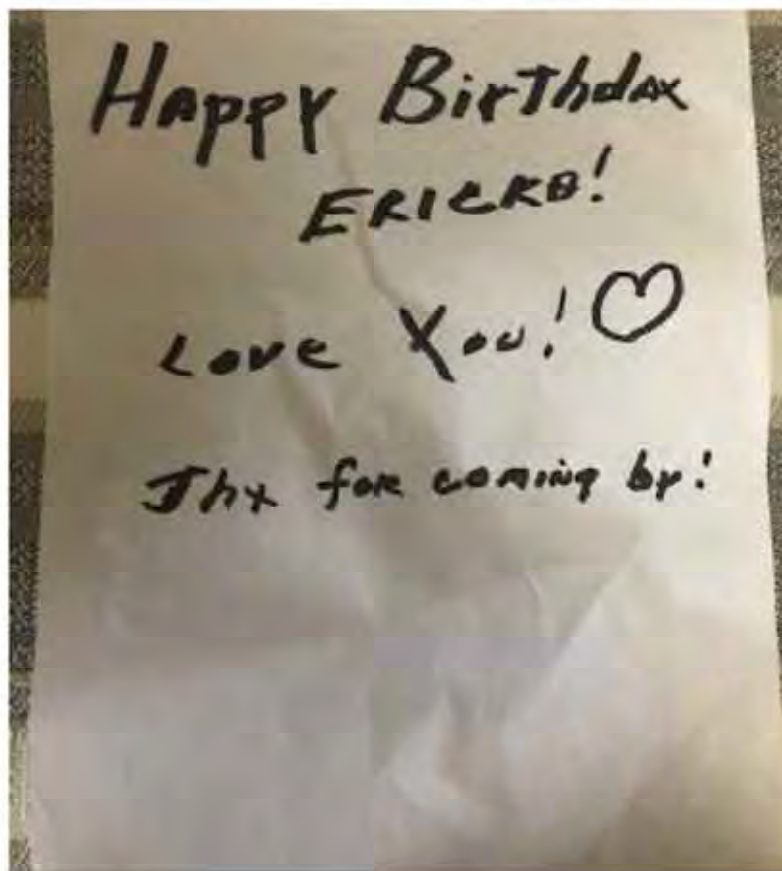 Happy Birthday
ERICKA!
Love You! ♡
Thx for coming by!